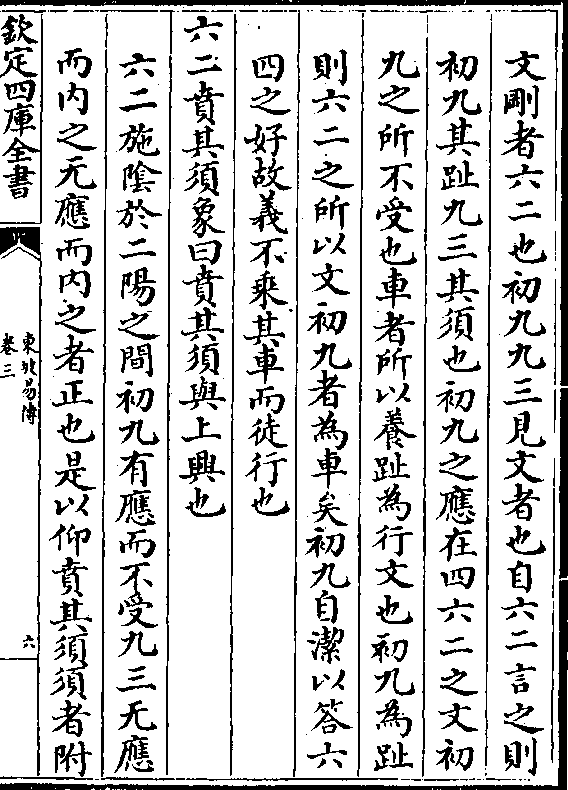 文剛者六二也初九九三見文者也自六二言之則
初九其趾九三其須也初九之應在四六二之文初
九之所不受也車者所以養趾為行文也初九為趾
則六二之所以文初九者為車矣初九自潔以答六
四之好故義不乘其車而徒行也
六二賁其須象曰賁其須與上興也
六二施陰於二陽之間初九有應而不受九三无應
而内之无應而内之者正也是以仰賁其須須者附
欽定四庫全書
東坡易傳
卷三
六